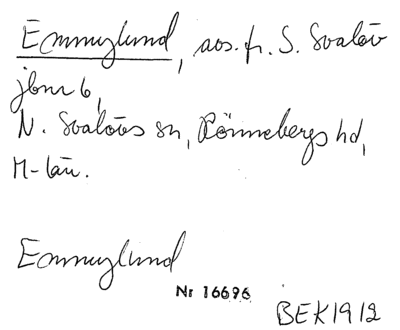 Emmylund, avs. fr. S. Svalöv
jbnr 6,
N. Svalövs sn, Rönnebergs hd,
M-län.
Emmylund
Nr 16696
BEK1912